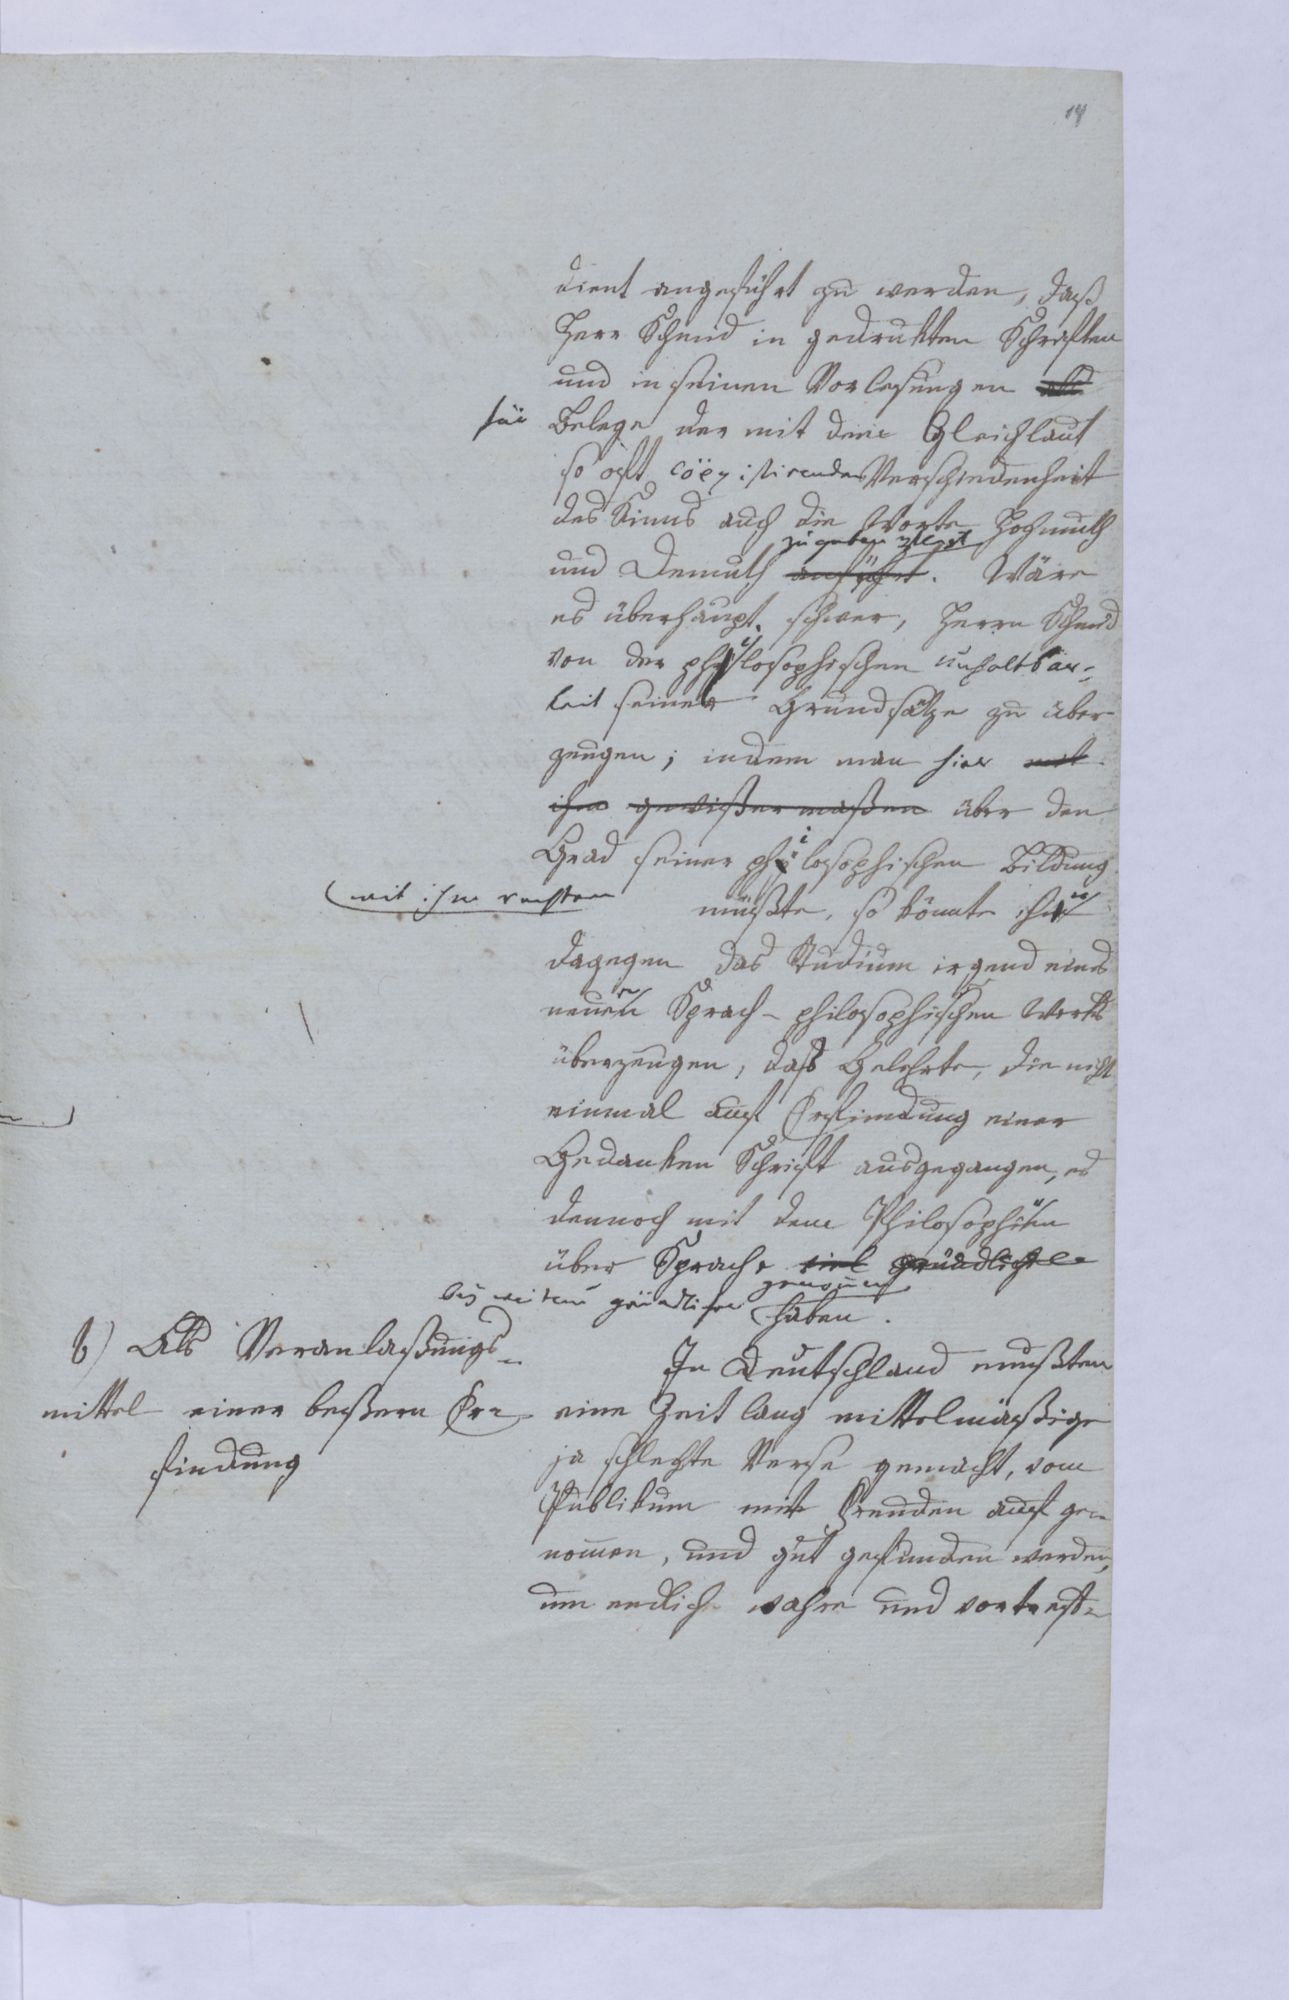 14
dient angeführt zu werden, daß
Herr Schmid in gedrukten Schriften
und in seinen Vorlesungen als
für Belege der mit dem Gleichlaut
so oft coëxistirenden Verschiedenheit
des Sinns auch die Worte Hochmuth
zu geben pflegt
und Demuth anführt. Wäre
es überhaupt schwer, Herrn Schmid
von der philosophischen Unhaltbar-
keit seiner Grundsätze zu über
zeugen; indem man hier mit
ihm gewißermaßen über den
Grad seiner philosophischen Bildung
mit ihm rechten müßte, so könnte ihn
dagegen das Studium irgend eines
neuern Sprach-philosophischen Werks
überzeugen, daß Gelehrte, die nicht
einmal auf Erfindung einer
Gedanken Schrift ausgegangen, es
dennoch mit dem Philosophiren
über Sprache viel gründlicher
bey weitem gründlicher genommen haben.
b) Als Veranlaßungs-
mittel einer beßern Er-
findung
In Deutschland mußten
eine Zeit lang mittelmäßige
ja schlechte Verse gemacht, vom
Publikum mit Freuden auf ge-
nommen, und gut gefunden werden,
um endlich wahre und vortref-